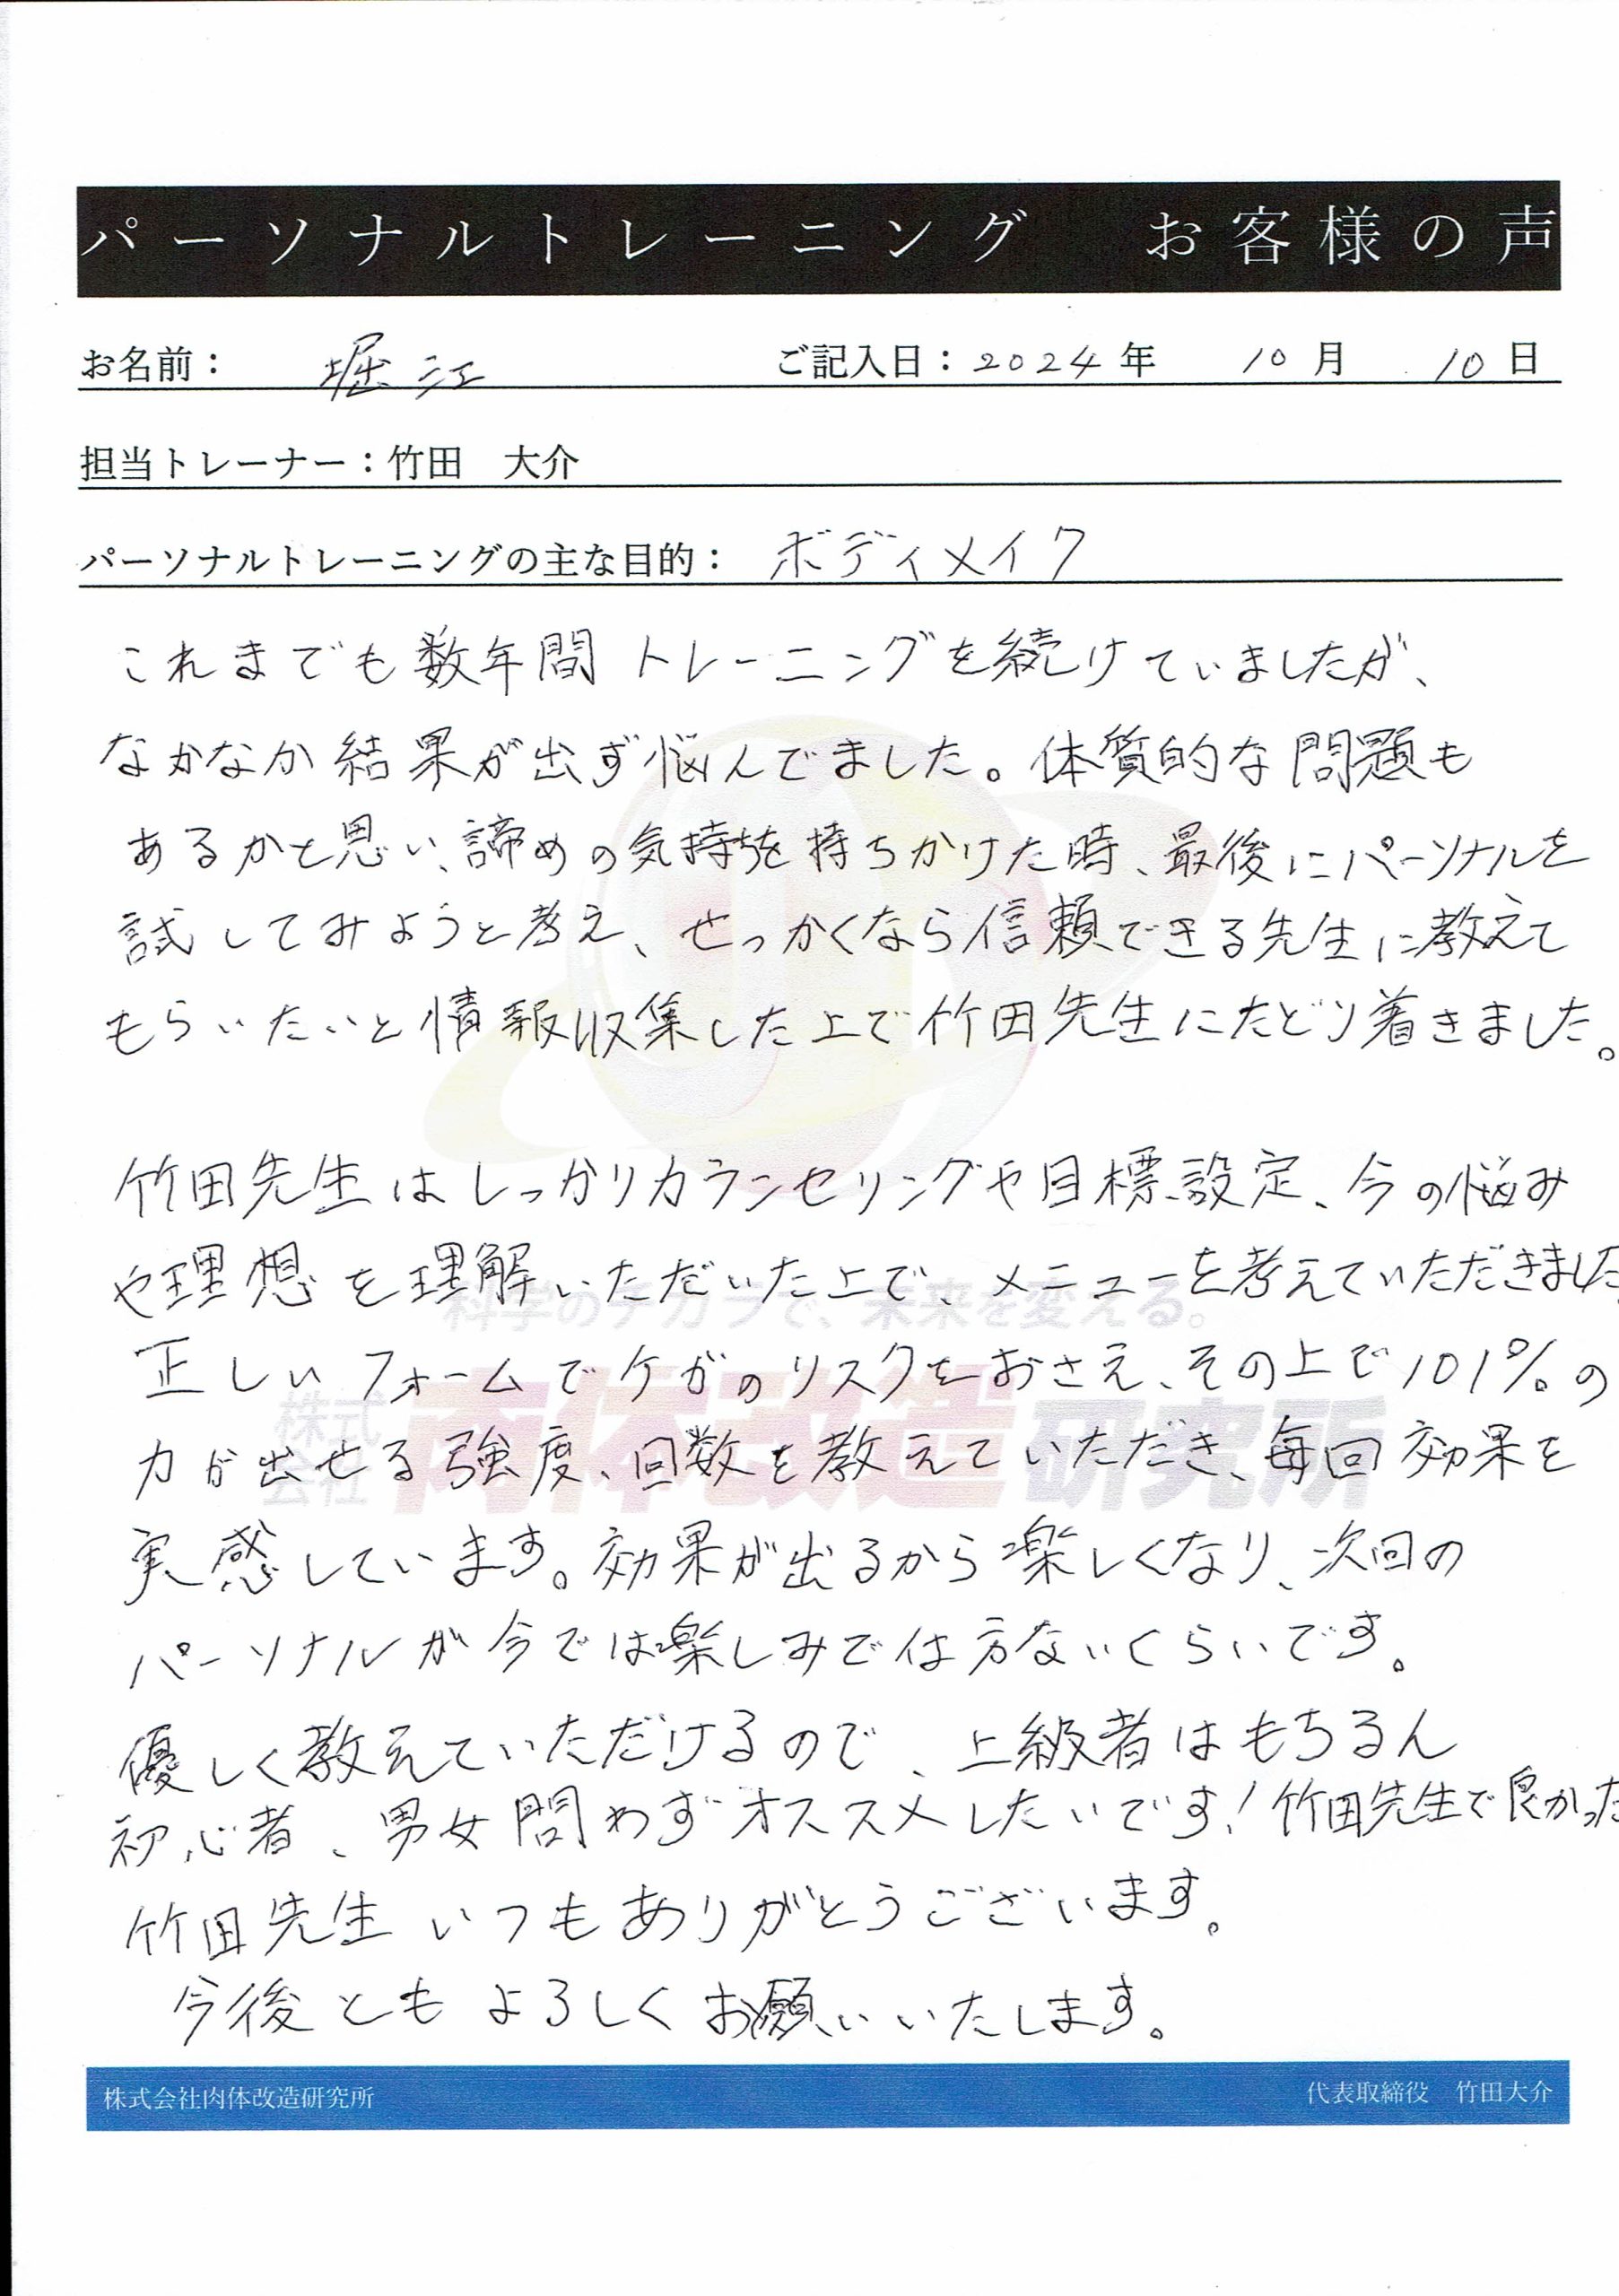 パーソナルトレーニング　お客様の声
お名前： 堀江　ご記入日：2024年 10月 10日
担当トレーナー：竹田　大介
パーソナルトレーニングの主な目的： ボディメイク
これまでも数年間トレーニングを続けていましたが、
なかなか結果が出ず悩んでました。体質的な問題も
あるかと思い、諦めの気持ちを持ちかけた時、最後にパーソナルを
試してみようと考え、せっかくなら信頼できる先生に教えて
もらいたいと情報収集した上で竹田先生にたどり着きました。
竹田先生はしっかりカウンセリングや目標設定、今の悩み
や理想を理解いただいた上で、メニューを考えていただきました
科学のチカラで、未来を変える。
正しいフォームでケガのリスクをおさえ、その上で101%の
株式会社 肉体改造研究所
力が出せる強度、回数を教えていただき、毎回効果を
実感しています。効果が出るから楽しくなり、次回の
パーソナルが今では楽しみで仕方ないくらいです。
優しく教えていただけるので、上級者はもちろん
初心者、男女問わずオススメしたいです！竹田先生で良かった
竹田先生いつもありがとうございます。
今後ともよろしくお願いいたします。
株式会社肉体改造研究所　代表取締役　竹田大介